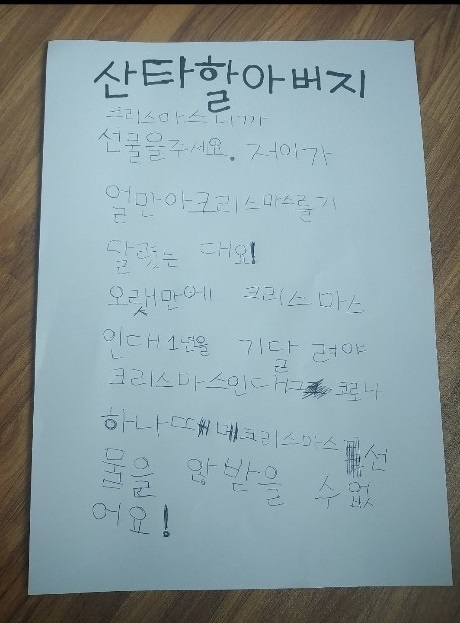 산타할아버지
크리스마스니까
선물을주세요. 저이가
얼만아크리스마스를기
달렸는 대요!
오랫만에 크리스마스
인대 1년을 기달 려야
크리스마스인대 코로나
하나때 메크리스마스 선
물을 않받을 수없
어요!